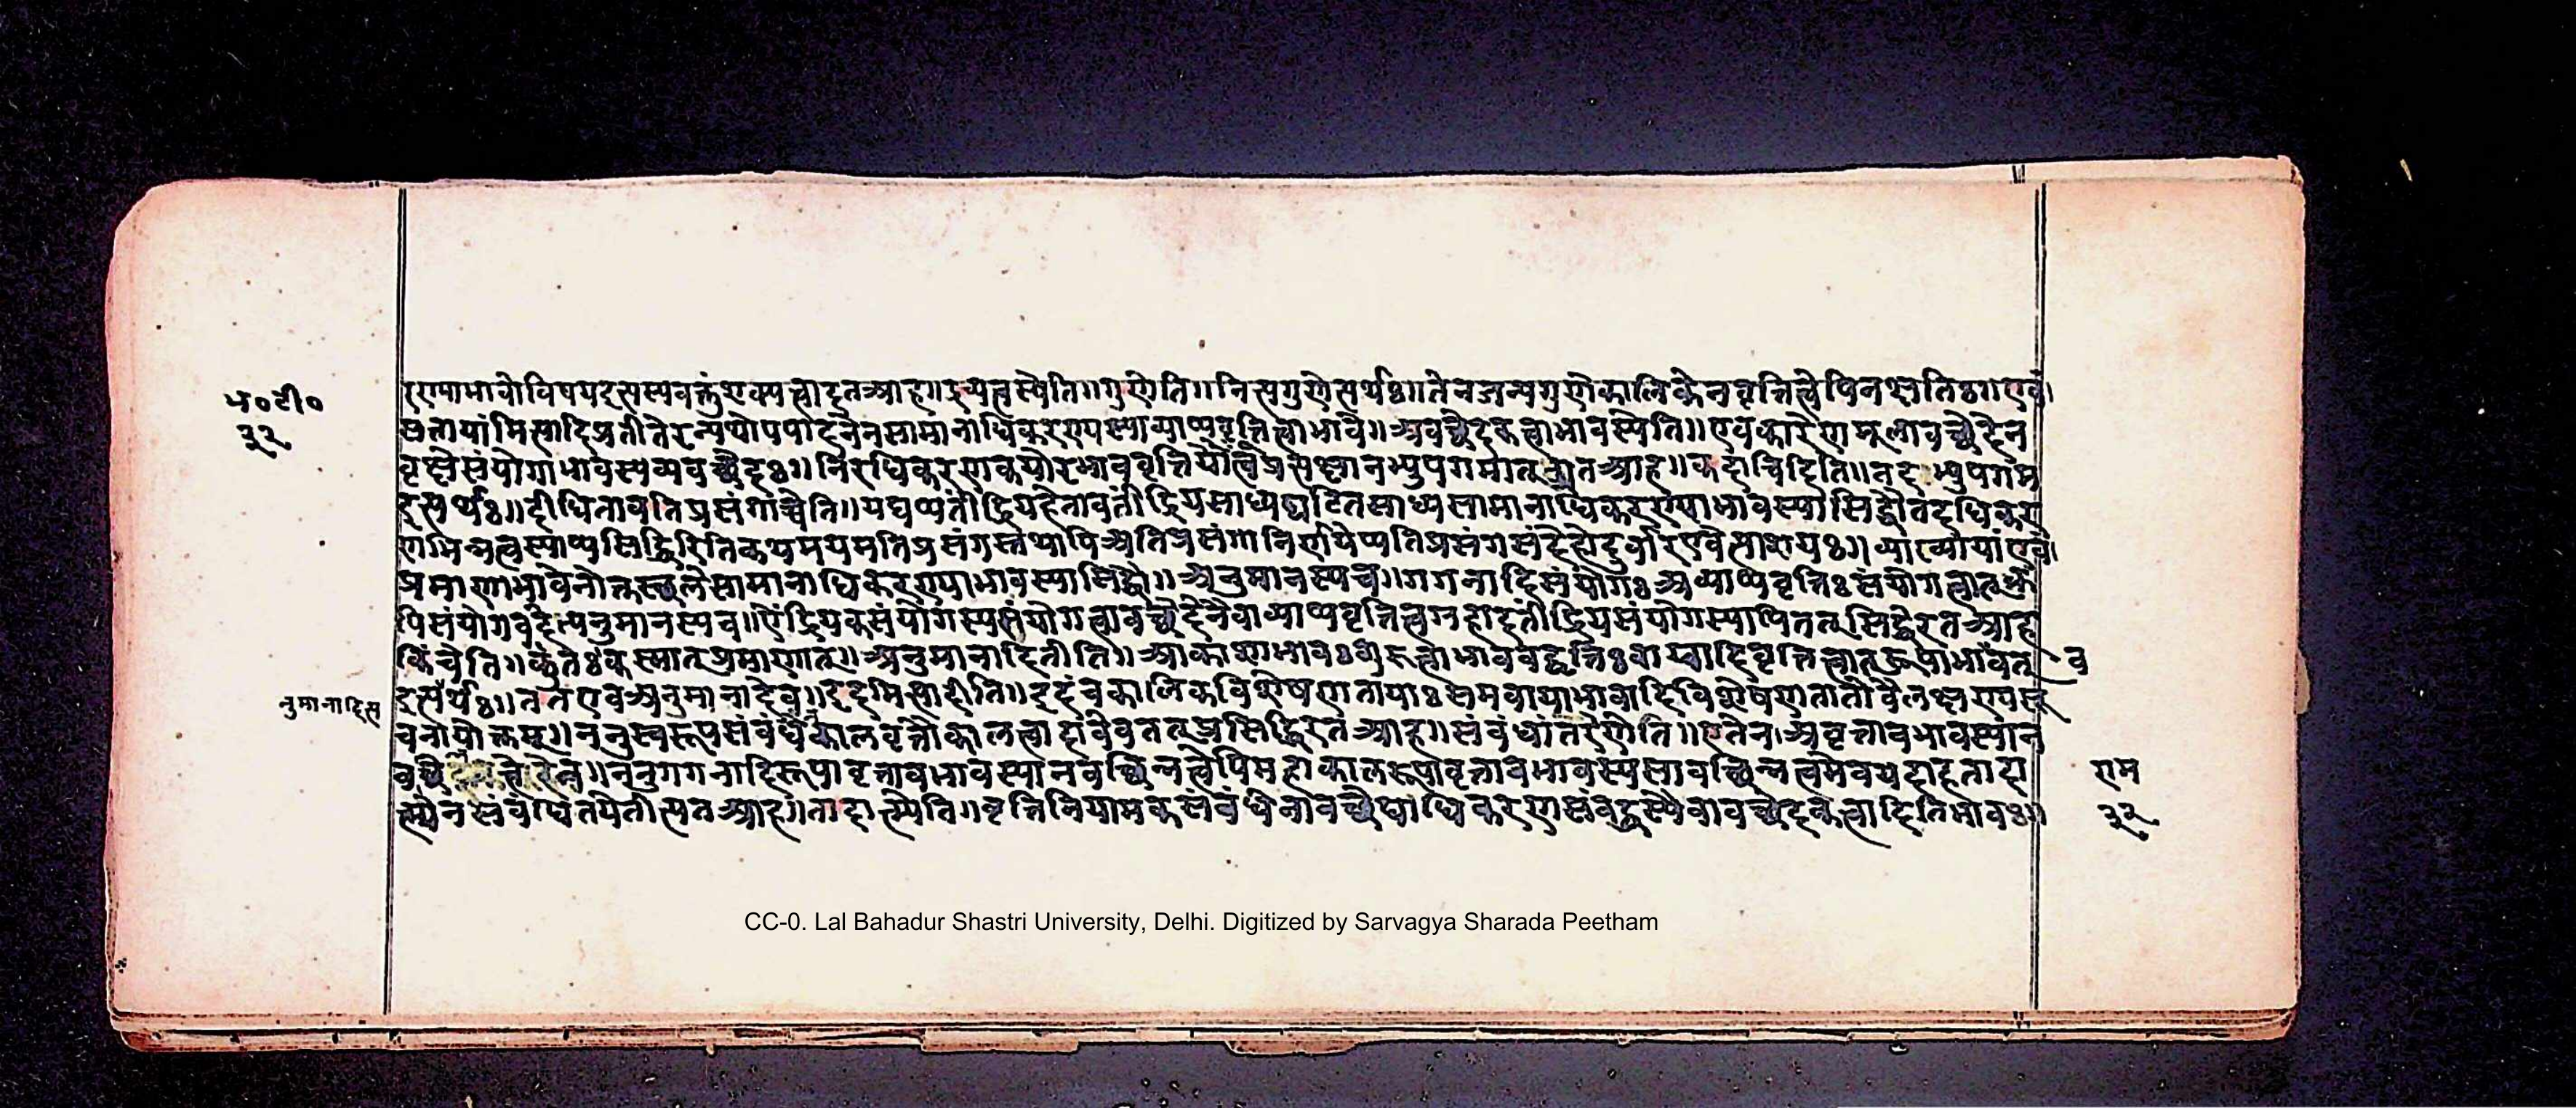 प० टी०
३२
रणाभावोविषयइत्यस्यवक्तुंशक्यत्वादतआह॥द्रव्यत्वस्येति॥गुणेति॥नित्यगुणेत्यर्थः॥तेनजन्यगुणेकालिकेनवृत्तित्वेपिनक्षतिः॥एवं।
प्रतीतेरन्यथोपपादनेनसामानाधिकरण्यस्याव्याप्यवृत्तित्वाभावे॥अवच्छेदकत्वाभावस्येति॥एवकारेणमूलावच्छेदेन
वृक्षेसंयोगाभावस्यव्यवच्छेदः॥निरधिकरणकयोरभाववृत्तियोत्वंप्रसक्षानभ्युपगमात्तत्रातआह॥कदाचिदिति॥तदभ्युपगम
इत्यर्थः॥दीधितावतिप्रसंगाच्चेति॥यद्यप्यतींद्रियहेतावतींद्रियसाध्यघटितसाध्यसामानाधिकरण्याभावस्यासिद्धौतदधिकर
णभिन्नत्वस्याप्यसिद्धिरितिकथमयमतिप्रसंगस्तथापिअतिप्रसंगानिर्णयेप्यतिप्रसंगसंदेहोदुर्वारएवेत्याशयः॥व्याख्यायांएवं।
प्रमाणाभावेनोक्तस्थलेसामानाधिकरण्याभावस्यासिद्धौ॥अनुमानस्यच॥गगनादिसंयोगःअव्याप्यवृत्तिःसंयोगत्वात्वृक्षे
पिसंयोगवदित्यनुमानस्यच॥ऐंद्रियकसंयोगस्यसंयोगत्वावच्छेदेनैवाव्याप्यवृत्तित्वग्रहादतींद्रियसंयोगस्यापितत्सिद्धेरतआह
किंचेति॥कुतःकस्मात्प्रमाणात्॥अनुमानादितीति॥आकाशाभावः
व
इत्यर्थः॥ततएवअनुमानादेव॥इदमित्यादीति॥इदंचकालिकविशेषणतायाःसमवायाभावादिविशेषणतातोवैलक्षण्य
नुमानादिस
चनायोक्तम्॥ननुस्वरूपसंबंधेकालवृत्तौकालत्वादावेवतत्प्रसिद्धिरतआह॥संबंधांतरेणेति॥एतेन।अवृत्तावभावस्यान
॥ननुगगनादिरूपावृत्तावभावस्यानवच्छिन्नत्वेपिमहाकालरूपावृत्तावभावस्यसावच्छिन्नत्वमेवयदाहतादा
त्म्येनसंबंधितयेतीत्यतआह॥तादात्म्येति॥वृत्तिनियामकसंबंधेनावच्छेद्याधिकरणसंबद्धस्यैवावच्छेदकत्वादितिभावः॥
राम
३२
CC-0. Lal Bahadur Shastri University, Delhi. Digitized by Sarvagya Sharada Peetham